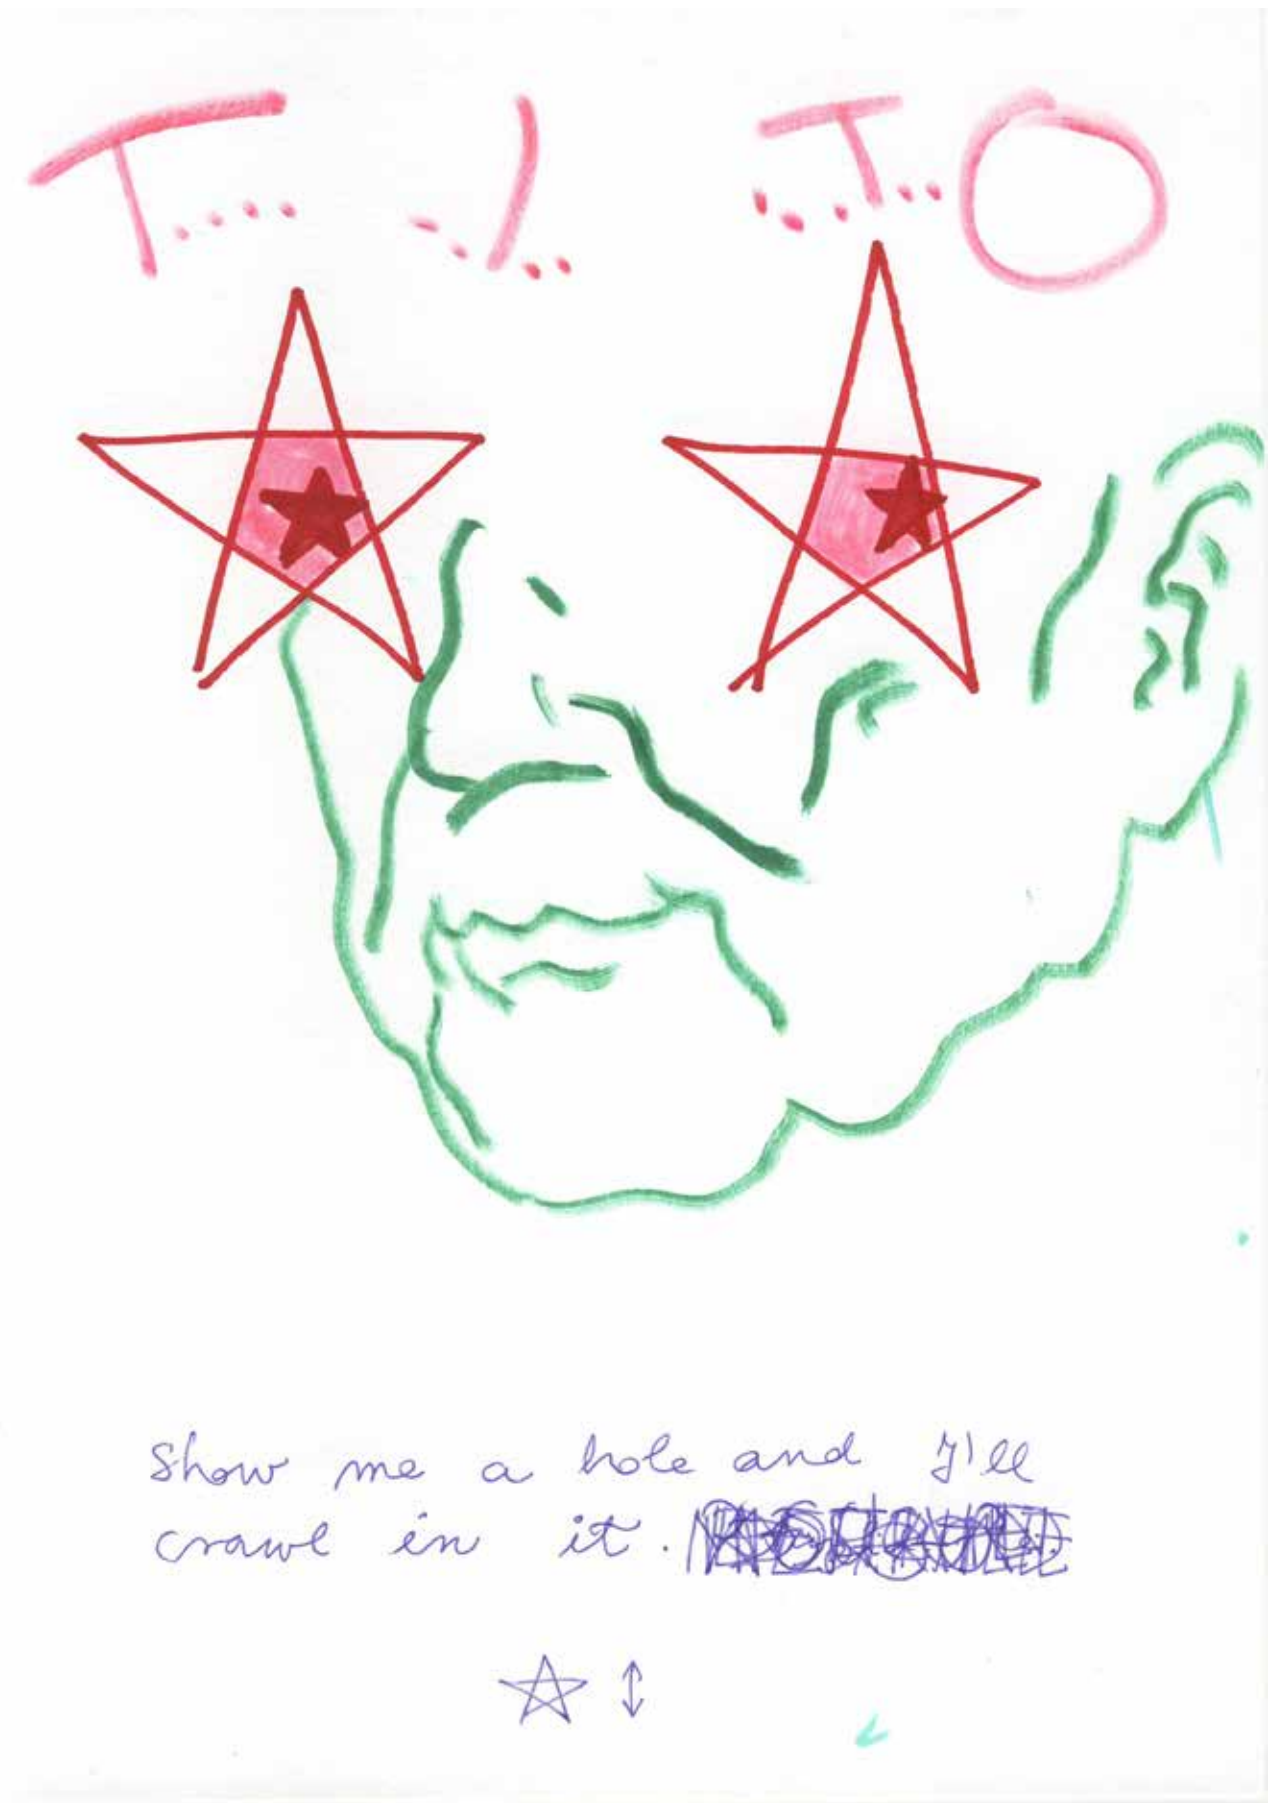 T.... ..J.. ....T..O
Show me a hole and I'll
crawl in it.